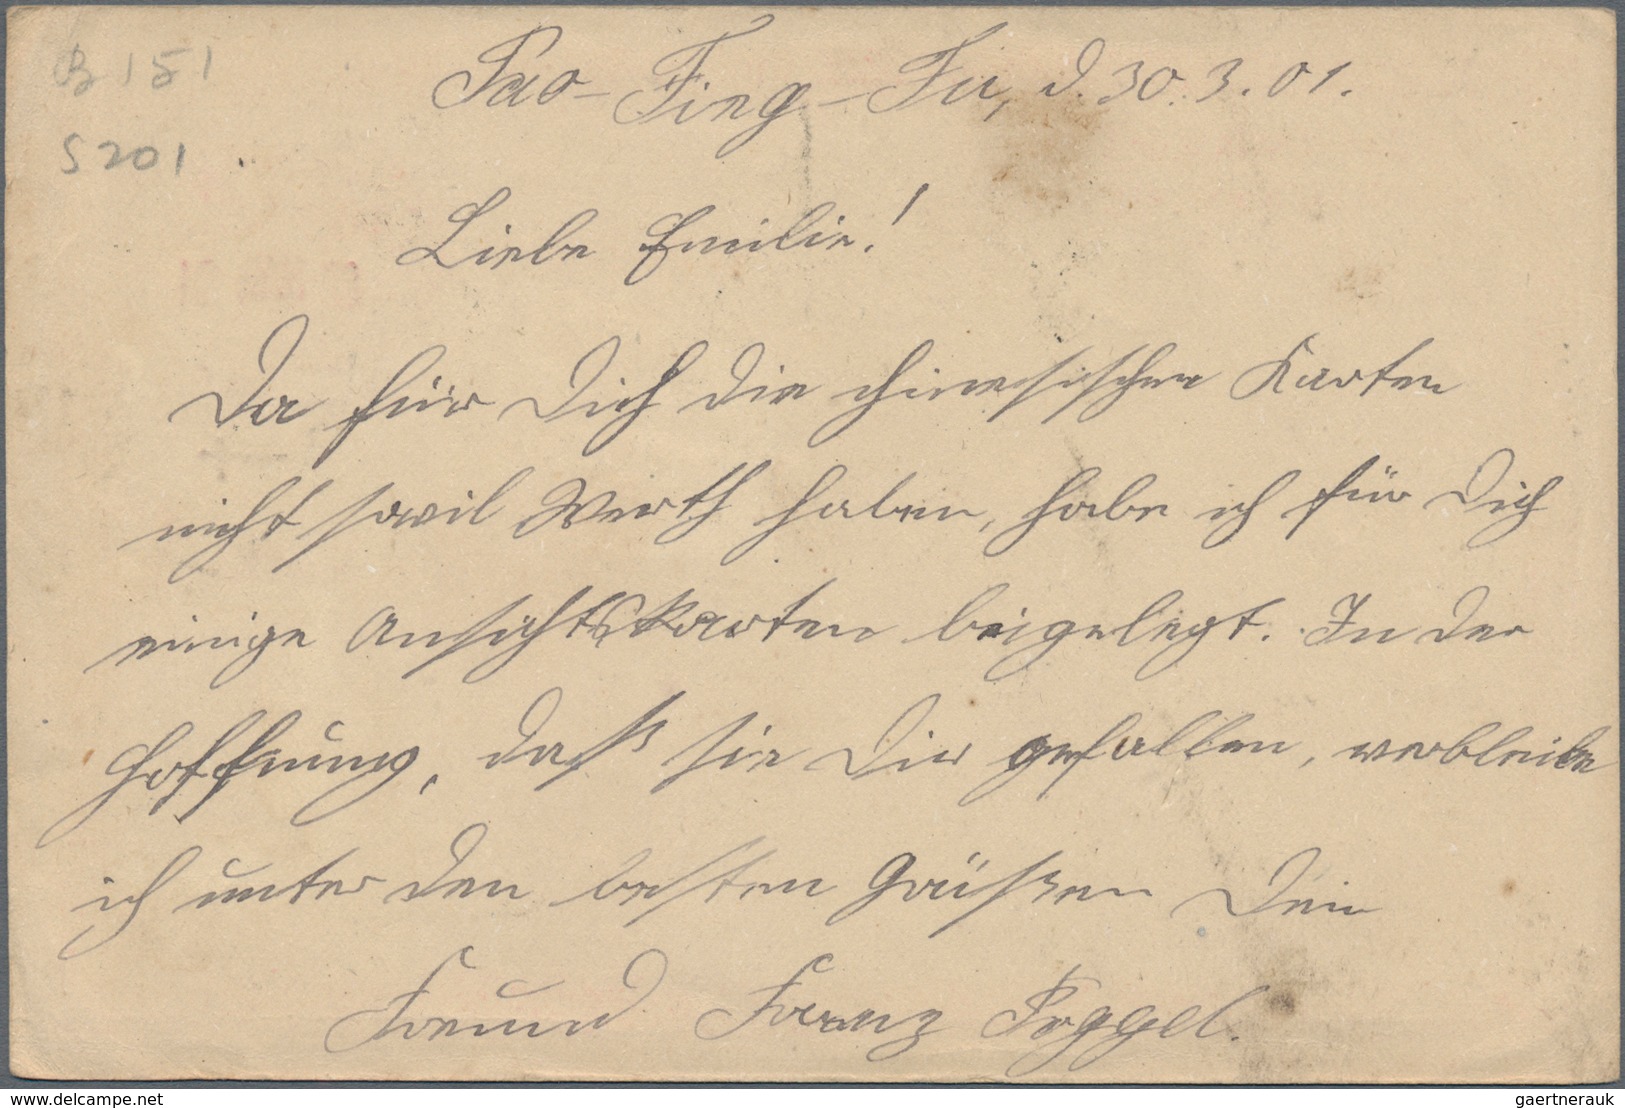 B 151
S 201
Pao-Ting-Fu, d. 30.3.01.
Liebe Emilie!
Da für Dich die chinesischen Karten
nicht sovil Werth haben, habe ich für Dich
einige Ansichtskarten beigelegt. In der
Hoffnung, daß sie Dir gefallen, verbleibe
ich unter den besten Grüßen Dein
Freund Franz
www.delcampe.net
gaertnerauk